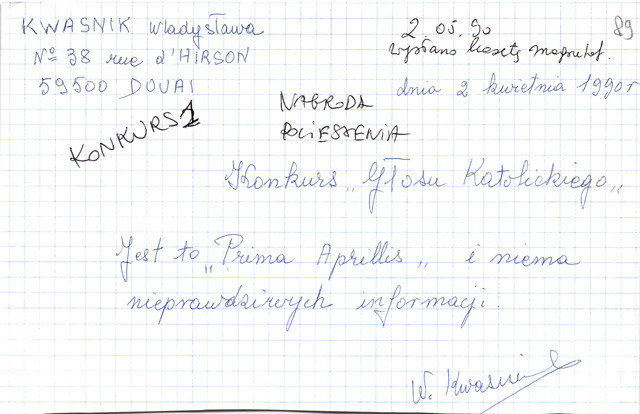 KWASNIK Władysława
Nº 38 rue d'HIRSON
59500 DOUAI
2.05.90
wysłano kasetę magnetof.
89
dnia 2 kwietnia 1990r
KONKURS 1
NAGRODA
POCIESZENIA
Konkurs „Głosu Katolickiego„
Jest to „Prima Aprillis„ i niema
nieprawdziwych informacji.
W. Kwasnik